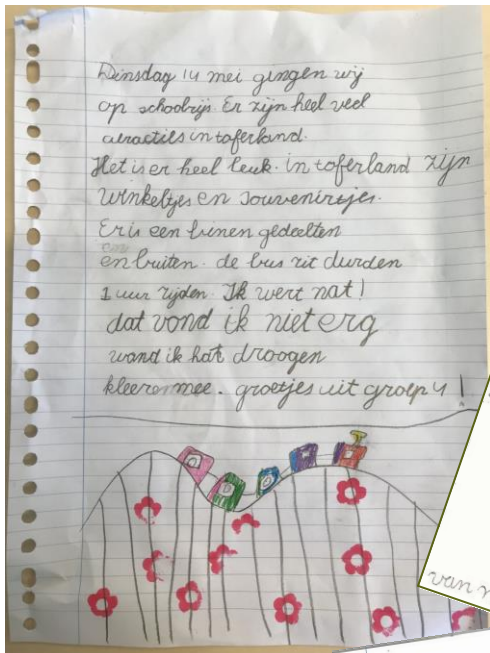 Dinsdag 14 mei gingen wij
op schoolrijs. Er zijn heel veel
atractiis in toferland.
Het is er heel leuk. in toferland zijn
winkeltjes en souvenirtjes.
Er is een binen gedeelten
en buiten. de bus rit durden
1 uur rijden. Ik wert nat!
dat vond ik niet erg
wand ik hat droogen
kleeren mee. groetjes uit groep 4!
van